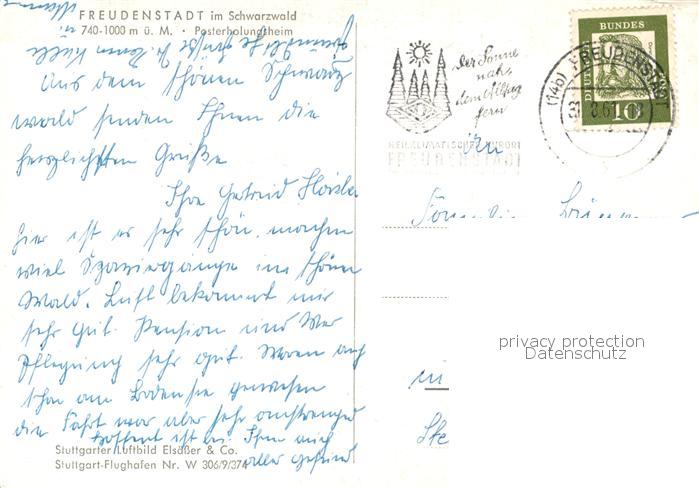 FREUDENSTADT im Schwarzwald
740-1000 m ü. M. · Posterholungsheim
Aus dem schönen Schwarz
wald senden Ihnen die
herzlichsten Grüße
Ihre Gertrud
hier ist es sehr schön, machen
viel Spaziergänge im schönen
Wald. Luft bekommt mir
sehr gut. Pension und Ver
pflegung sehr gut. Waren auch
schon am Bodensee gewesen
die Fahrt war aber sehr anstrengend
hoffent ist bei Ihnen auch
alles gesund
Stuttgarter Luftbild Elsäßer & Co.
Stuttgart-Flughafen Nr. W 306/9/374
Der Sonne
nah,
dem Alltag
fern
HEILKLIMATISCHER KURORT
FREUDENSTADT
(14b) FREUDENSTADT
DEUTSCHE BUNDESPOST
10
An
Familie
in
privacy protection
Datenschutz